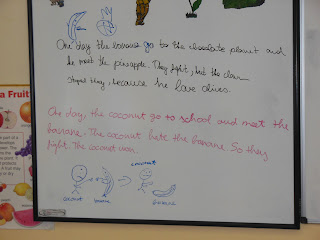 One day, the banana go to the chocolate planet and
he meet the pineapple. They fight, but the clown
stoped they, because he love olives.
One day, the coconut go to school and meet the
banana. The coconut hate the banana. So they
fight. The coconut won.
coconut
coconut banana
banana
a Fruit